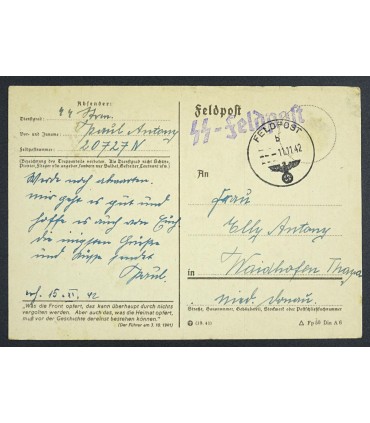 Absender:
Dienstgrad: ϟϟ Strm.
Vor- und Zuname: Paul Antony
Feldpostnummer: 20727 N
(Bezeichnung des Truppenteiles verboten. Als Dienstgrad nicht Schütze,
Werde noch abwarten.
mir geht es gut und
hoffe es auch von Euch
die innigsten Grüße
und Küsse sendet
Paul.
15. XI. 42
„Was die Front opfert, das kann überhaupt durch nichts
vergolten werden. Aber auch das, was die Heimat opfert,
muß vor der Geschichte dereinst bestehen können."
(Der Führer am 3. 10. 1941)
Feldpost
ϟϟ-Feldpost
FELDPOST
b
11.42
An
Frau
Elly Antony
in Waidhofen Thaya
nied. Donau.
Straße, Hausnummer, Gebäudeteil, Stockwerk oder Postschließfachnummer
Din A 6